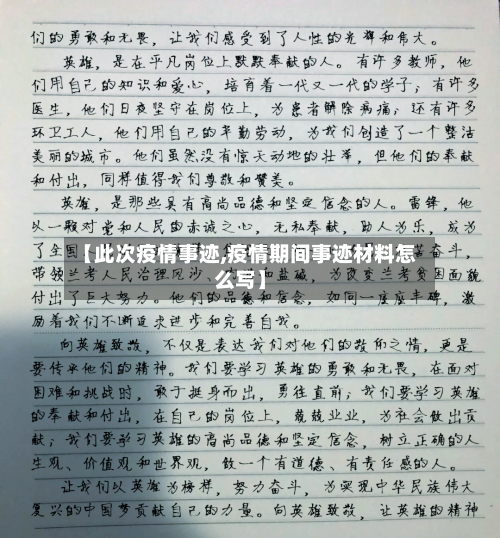 们的勇敢和无畏，让我们感受到了人性的光辉和伟大。
英雄，是在平凡岗位上默默奉献的人。有许多教师，他
们用自己的知识和爱心，培育着一代又一代的学子；有许多
医生，他们日夜坚守在岗位上，为患者解除病痛；还有许多
环卫工人，他们用自己的辛勤劳动，为我们创造了一个整洁
美丽的城市。他们虽然没有惊天动地的壮举，但他们的奉献
和付出，同样值得我们尊敬和赞美。
英雄，是那些具有高尚品德和坚定信念的人。雷锋，他
以一颗对党和人民的赤诚之心，无私奉献，助人为乐，成为
了全国
【此次疫情事迹,疫情期间事迹材料怎
奋斗，
么写】
带领兰考人民治理风沙、和盐碱，为改变兰考贫困面貌
付出了巨大努力。他们的品德和信念，如同一座座丰碑，激
励着我们不断追求进步和完善自我。
向英雄致敬，不仅是表达我们对他们的敬仰之情，更是
要传承他们的精神。我们要学习英雄的勇敢和无畏，在面对
困难和挑战时，敢于挺身而出，勇往直前；我们要学习英雄
的奉献和付出，在自己的岗位上，兢兢业业，为社会做出贡
献；我们要学习英雄的高尚品德和坚定信念，树立正确的人
生观、价值观和世界观，做一个有道德、有责任感的人。
让我们以英雄为榜样，努力奋斗，为实现中华民族伟大
复兴的中国梦贡献自己的力量。向英雄致敬，让英雄的精神